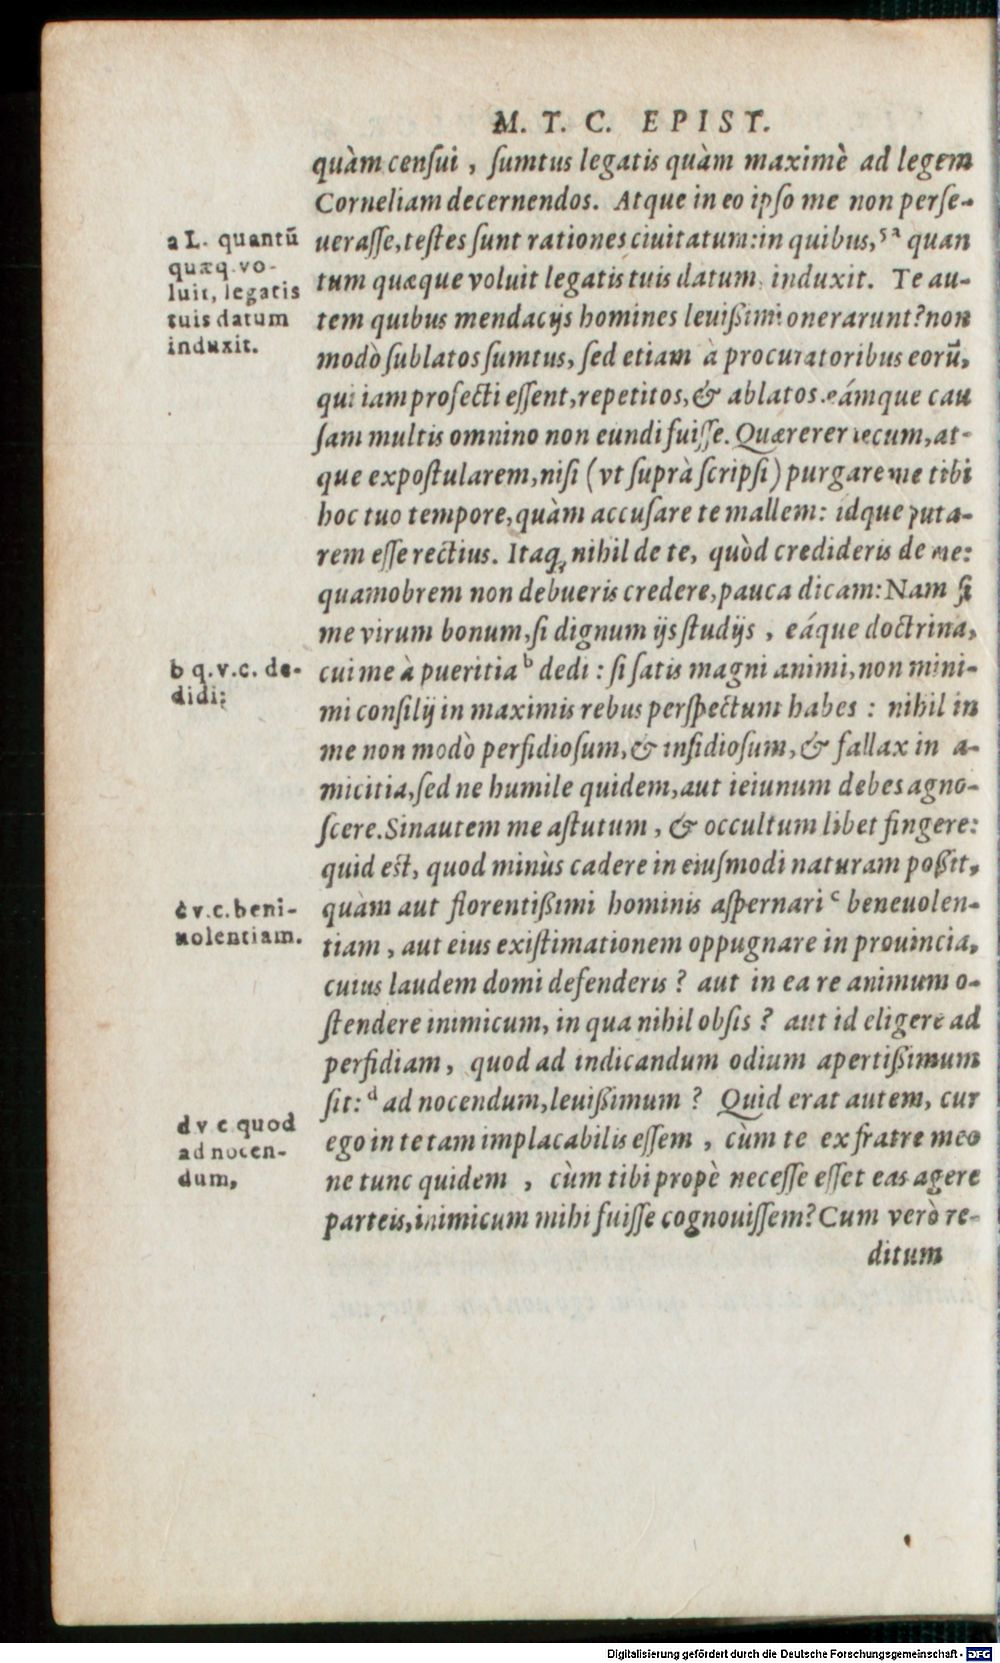 M. T. C. EPIST.
quàm censui, sumtus legatis quàm maximè ad legem
Corneliam decernendos. Atque in eo ipso me non perse-
uerasse, testes sunt rationes ciuitatum: in quibus, 5a quan
tum quæque voluit legatis tuis datum, induxit. Te au-
tem quibus mendacijs homines leuißimi onerarunt? non
modò sublatos sumtus, sed etiam à procuratoribus eorũ,
qui iam profecti essent, repetitos, & ablatos. eámque cau
sam multis omnino non eundi fuisse. Quærerer tecum, at-
que expostularem, nisi (vt suprà scripsi) purgare me tibi
hoc tuo tempore, quàm accusare te mallem: idque puta-
rem esse rectius. Itaq; nihil de te, quòd credideris de me:
quamobrem non debueris credere, pauca dicam: Nam si
me virum bonum, si dignum ijs studijs, eáque doctrina,
cui me à pueritia b dedi: si satis magni animi, non mini-
mi consilij in maximis rebus perspectum habes: nihil in
me non modò perfidiosum, & insidiosum, & fallax in a-
micitia, sed ne humile quidem, aut ieiunum debes agno-
scere. Sin autem me astutum, & occultum libet fingere:
quid est, quod minùs cadere in eiusmodi naturam poßit,
quàm aut florentißimi hominis aspernari c beneuolen-
tiam, aut eius existimationem oppugnare in prouincia,
cuius laudem domi defenderis? aut in ea re animum o-
stendere inimicum, in qua nihil obsis? aut id eligere ad
perfidiam, quod ad indicandum odium apertißimum
sit: d ad nocendum, leuißimum? Quid erat autem, cur
ego in te tam implacabilis essem, cùm te ex fratre meo
ne tunc quidem, cùm tibi propè necesse esset eas agere
parteis, inimicum mihi fuisse cognouissem? Cum verò re-
ditum
a L. quantũ
quæq. vo-
luit, legatis
tuis datum
induxit.
b q.v.c. de-
didi:
c v.c. beni-
uolentiam.
d v c quod
ad nocen-
dum,
Digitalisierung gefördert durch die Deutsche Forschungsgemeinschaft - DFG